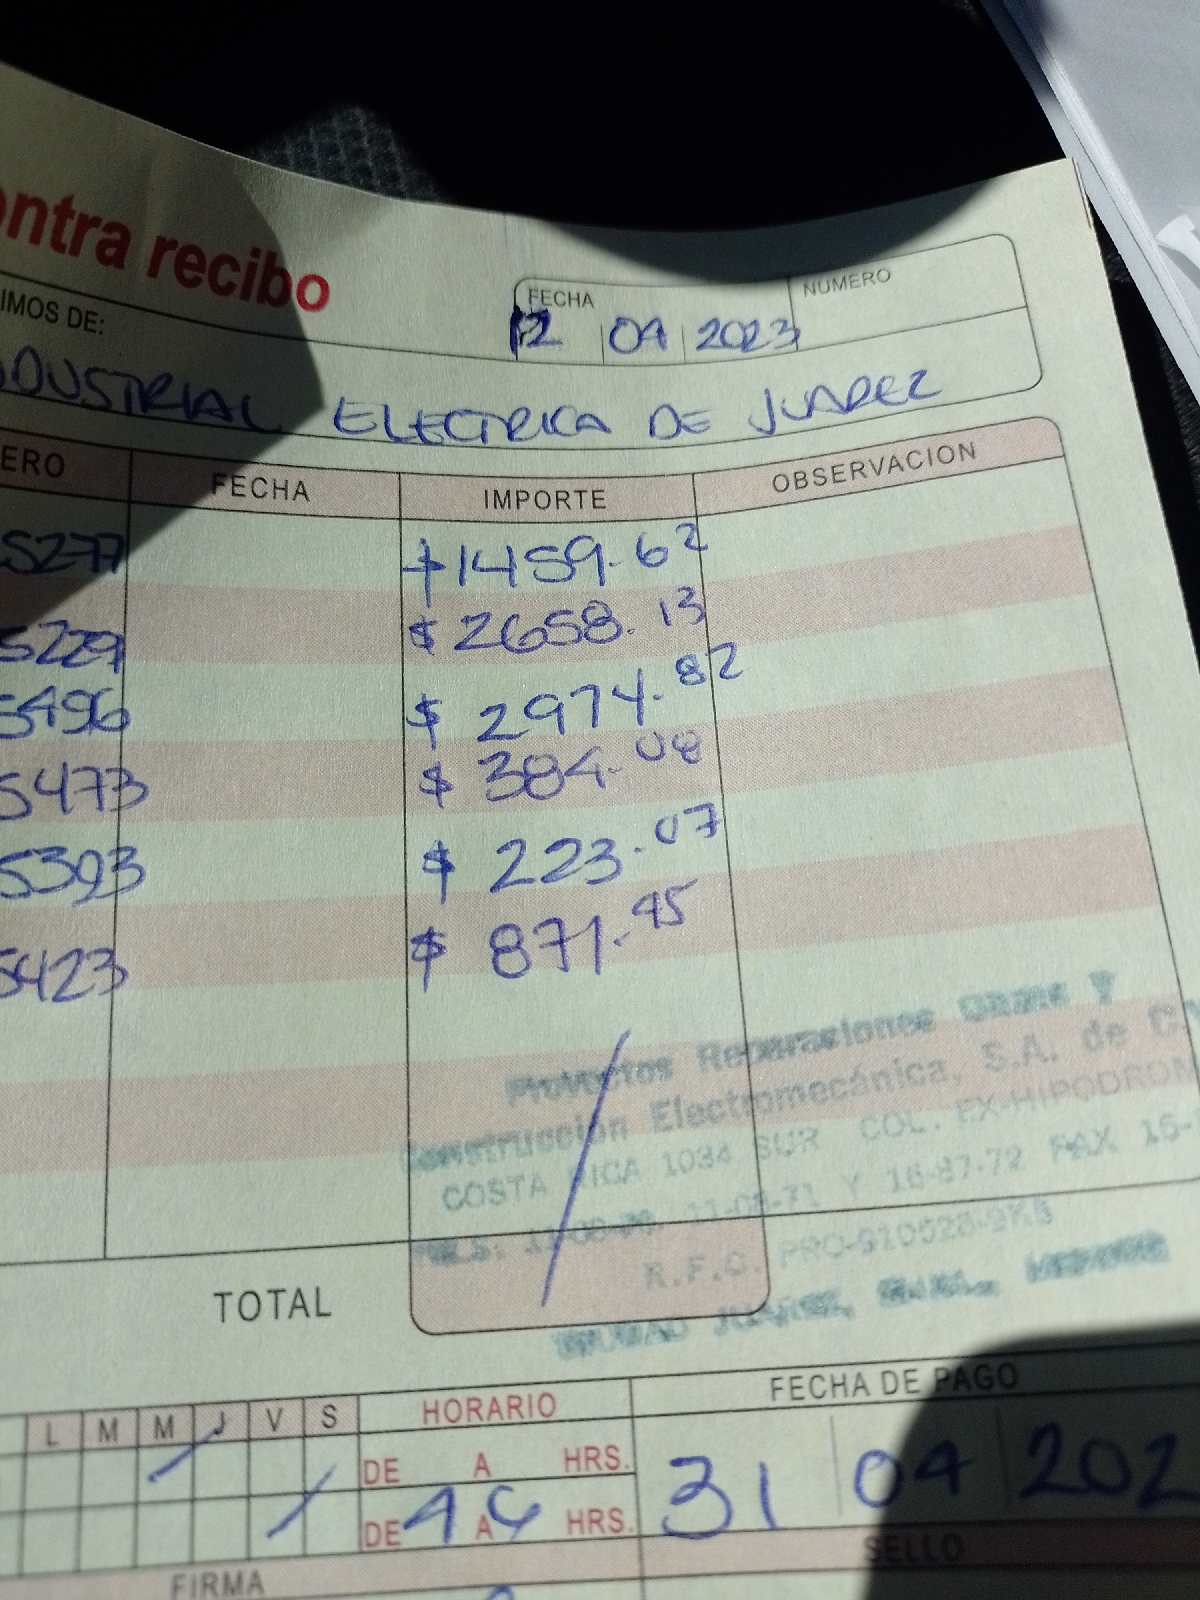 ontra recibo
FECHA NUMERO
12 04 2023
IMOS DE:
DUSTRIAL ELECTRICA DE JUAREZ
ERO FECHA IMPORTE OBSERVACION
5277 $1459.62
5229 $2658.13
5496 $2974.82
5473 $384.08
5393 $223.07
5423 $871.45
Proyectos Reparaciones Y
Construccion Electromecánica, S.A. de C.V
COSTA RICA 1034 SUR COL. EX-HIPODROM
11-08-71 Y 16-87-72 FAX 16-
R.F.C. PRO-910528-9K5
CIUDAD JUAREZ,
TOTAL
L M M J V S HORARIO FECHA DE PAGO
DE A HRS.
DE 4 A 6 HRS.
31 04 202
FIRMA SELLO